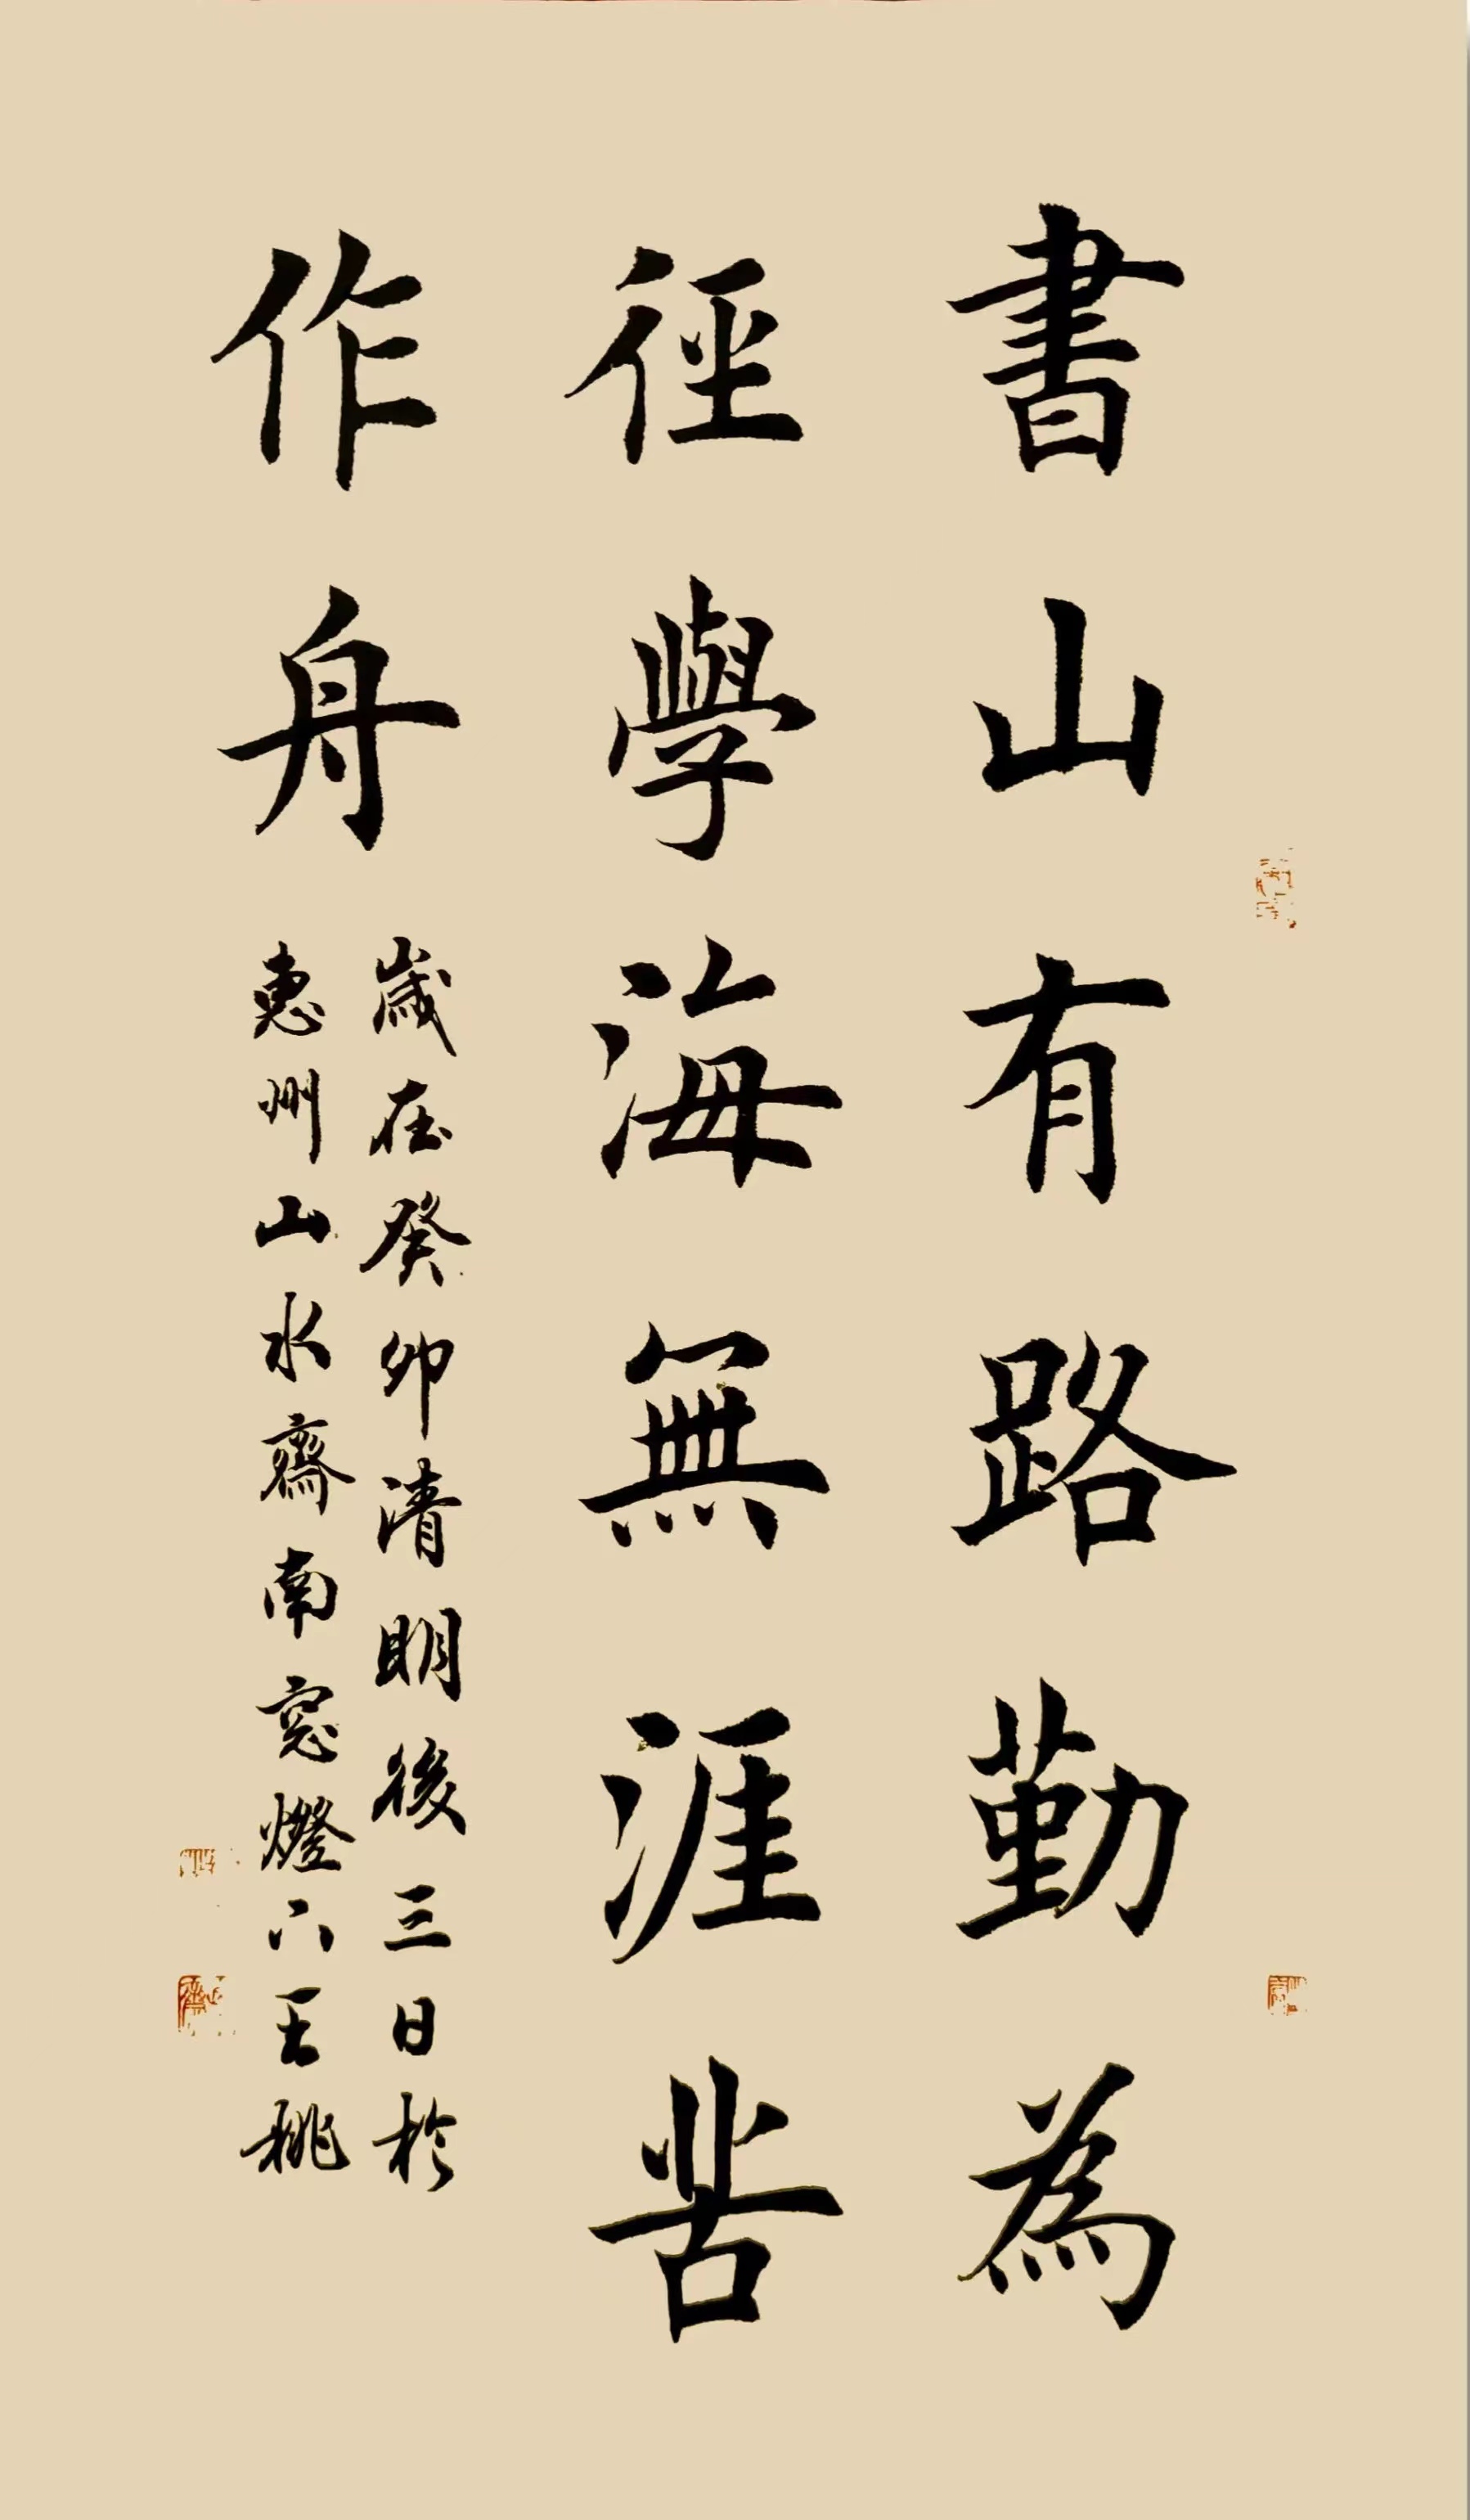 書山有路勤為
徑學海無涯苦
作舟
歲在癸卯清明後三日於
惠州山水齋南窓燈下王桃